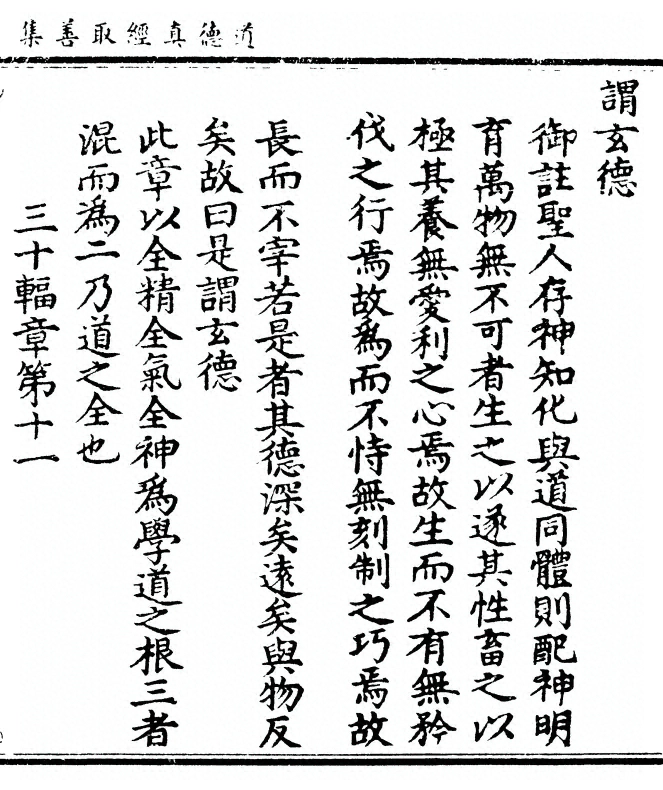 道德真經取善集
謂玄德
御註聖人存神知化與道同體則配神明
育萬物無不可者生之以遂其性畜之以
極其養無愛利之心焉故生而不有無矜
伐之行焉故為而不恃無刻制之巧焉故
長而不宰若是者其德深矣遠矣與物反
矣故曰是謂玄德
此章以全精全氣全神為學道之根三者
混而為二乃道之全也
三十輻章第十一